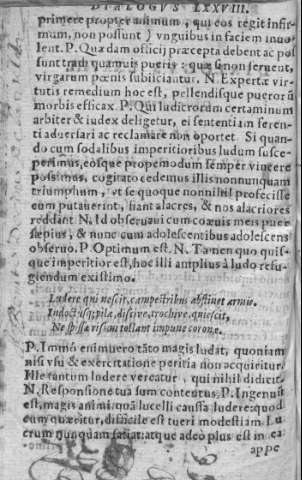 DIALOGVS LXXVIII.
primere propter animum, qui eos regit infir-
mum, non possunt) vnguibus in faciem inuo
lent. P. Quædam officij præcepta debent ac pos
sunt tradi quamuis pueris: quæ si non seruent,
virgarum pœnis subiiciantur. N. Expertæ vir-
tutis remedium hoc est, pellendisque puerorū
morbis efficax. P. Qui ludicrorum certaminum
arbiter & iudex deligetur, ei sententiam feren-
ti aduersari ac reclamare non oportet. Si quan-
do cum sodalibus imperitioribus ludum susce-
perimus, eosque propemodum semper vincere
possimus, cogitato cedemus illis nonnunquam
triumphum, vt se quoque nonnihil profecisse
cum putauerint, fiant alacres, & nos alacriores
reddant. N. Id obseruaui cum coæuis meis puer
sæpius, & nunc cum adolescentibus adolescens
obseruo. P. Optimum est. N. Tamen quo quis-
que imperitior est, hoc illi amplius à ludo refu-
giendum existimo.
Ludere qui nescit, campestribus abstinet armis.
Indoctusq; pilæ, disciue, trochiue, quiescit,
Ne spissæ risum tollant impune coronæ.
P. Immò enimuero tāto magis ludat, quoniam
nisi vsu & exercitatione peritia non acquiritur.
Ille tantum ludere vereatur, qui nihil didicit.
N. Responsione tua sum contentus. P. Ingenuū
est, magis animi, quā lucelli caussa ludere: quod
cum quæritur, difficile est tueri modestiam. Lu
crum nunquam satiat: atque adeò plus est in ea
appe